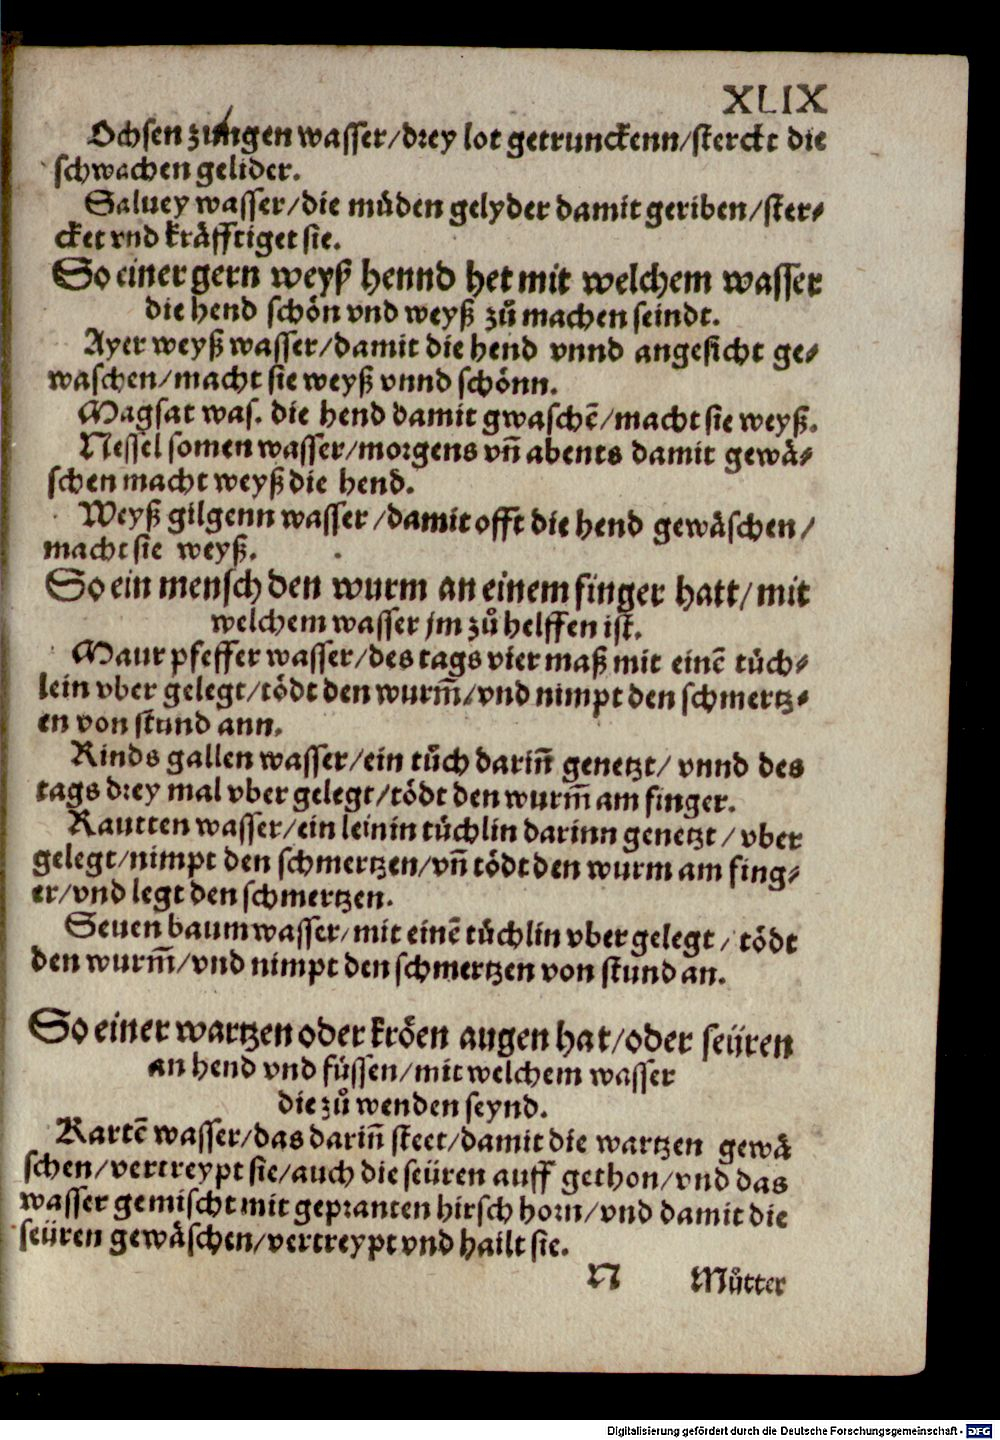 XLIX
Ochsen zungen wasser/drey lot getrunckenn/sterckt die
schwachen gelider.
Saluey wasser/die müden gelyder damit geriben/ster-
cket vnd kräfftiget sie.
So einer gern weyß hennd het mit welchem wasser
die hend schön vnd weyß zů machen seindt.
Ayer weyß wasser/damit die hend vnnd angesicht ge-
waschen/macht sie weyß vnnd schönn.
Magsat was. die hend damit gwaschẽ/macht sie weyß.
Nessel somen wasser/morgens vñ abents damit gewä-
schen macht weyß die hend.
Weyß gilgenn wasser/damit offt die hend gewäschen/
macht sie weyß.
So ein mensch den wurm an einem finger hatt/mit
welchem wasser jm zů helffen ist.
Maur pfeffer wasser/des tags vier maß mit einẽ tüch-
lein vber gelegt/tödt den wurm̃/vnd nimpt den schmertz-
en von stund ann.
Rinds gallen wasser/ein tůch dariñ genetzt/vnnd des
tags drey mal vber gelegt/tödt den wurm̃ am finger.
Rautten wasser/ein leinin tüchlin darinn genetzt/vber
gelegt/nimpt den schmertzen/vñ tödt den wurm am fing-
er/vnd legt den schmertzen.
Seuen baum wasser/mit einẽ tüchlin vber gelegt/tödt
den wurm̃/vnd nimpt den schmertzen von stund an.
So einer wartzen oder kröen augen hat/oder seüren
an hend vnd füssen/mit welchem wasser
die zů wenden seynd.
Kartẽ wasser/das dariñ steet/damit die wartzen gewä
schen/vertreypt sie/auch die seüren auff gethon/vnd das
wasser gemischt mit gepranten hirsch horn/vnd damit die
seüren gewäschen/vertreypt vnd hailt sie.
N Můtter
Digitalisierung gefördert durch die Deutsche Forschungsgemeinschaft - DFG